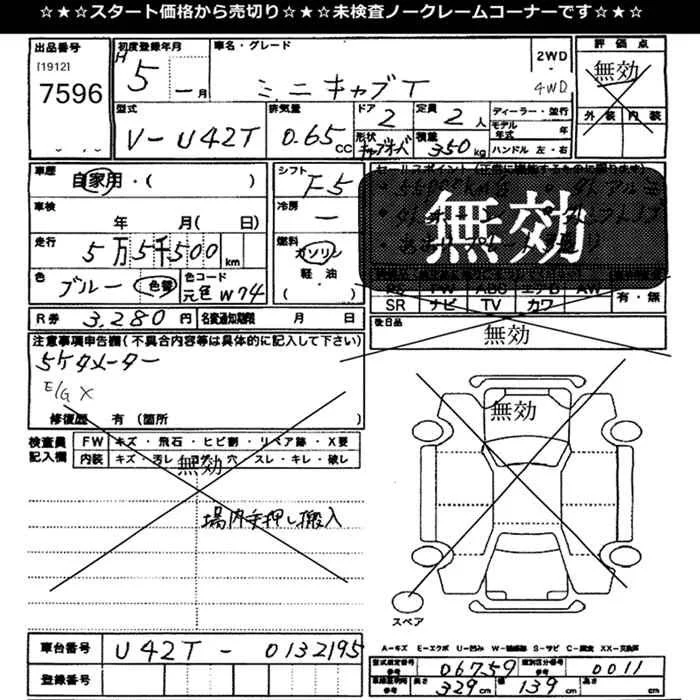 ☆★☆★スタート価格から売切り☆★☆★未検査ノークレームコーナーです☆★☆
出品番号
[1912]
7596
初度登録年月
H 5 年 — 月
車名・グレード
ミニキャブT
2WD
・
4WD
評価点
無効
外装 内装
型式
V-U42T
排気量
0.65 CC
ドア
2
形状
定員
2 人
積載
350 kg
ディーラー・並行
モデル年式 年
ハンドル 左・右
車歴
自家用・( )
シフト
F5
セールスポイント
無効
車検
年 月( 日)
冷房
—
走行
5万5千500 km
燃料
ガソリン
軽・油
( )
色
ブルー 色替
色コード
元色 W74
SR ナビ TV カワ
有・無
R券 3,280 円 名変通知期限 月 日
後日品
無効
注意事項申告欄(不具合内容等は具体的に記入して下さい)
5ケタメーター
E/G X
修復歴 有(箇所 )
検査員記入欄
FW キズ・飛石・ヒビ割・リペア跡・X要
内装 キズ・汚レ・コゲ・穴 スレ・キレ・破レ
無効
場内手押し搬入
無効
スペア
A－キズ E－エクボ U－凹み W－補修跡 S－サビ C－腐食 XX－交換済
車台番号 U42T - 0132195
登録番号
型式指定番号 参考 06759 類別区分番号 参考 0011
車検証明時 参考 長さ 329 cm 幅 139 cm 高さ cm